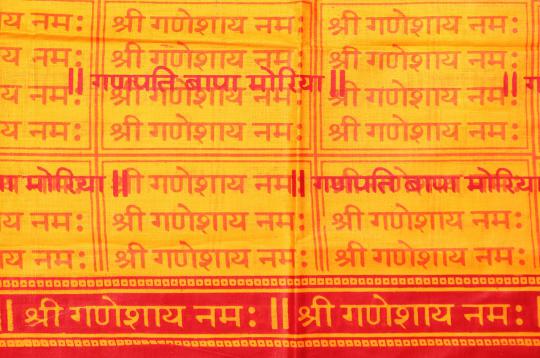 य नमः श्री गणेशाय नमः श्री गणेशाय नमः
य नमः श्री गणेशाय नमः श्री गणेशाय नमः
|| गणपति बापा मोरिया || || ग
य नमः श्री गणेशाय नमः श्री गणेशाय नमः
य नमः श्री गणेशाय नमः श्री गणेशाय नमः
श्री गणेशाय नमः श्री गणेशाय नमः
पा मोरिया || || गणपति बापा मोरिया
य नमः श्री गणेशाय नमः श्री गणेशाय नमः
य नमः श्री गणेशाय नमः श्री गणेशाय नमः
|| श्री गणेशाय नमः || श्री गणेशाय नमः ||